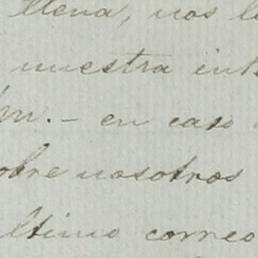 llena, nos l
nuestra int
m. - en caso
obre nosotros
ltimo correo